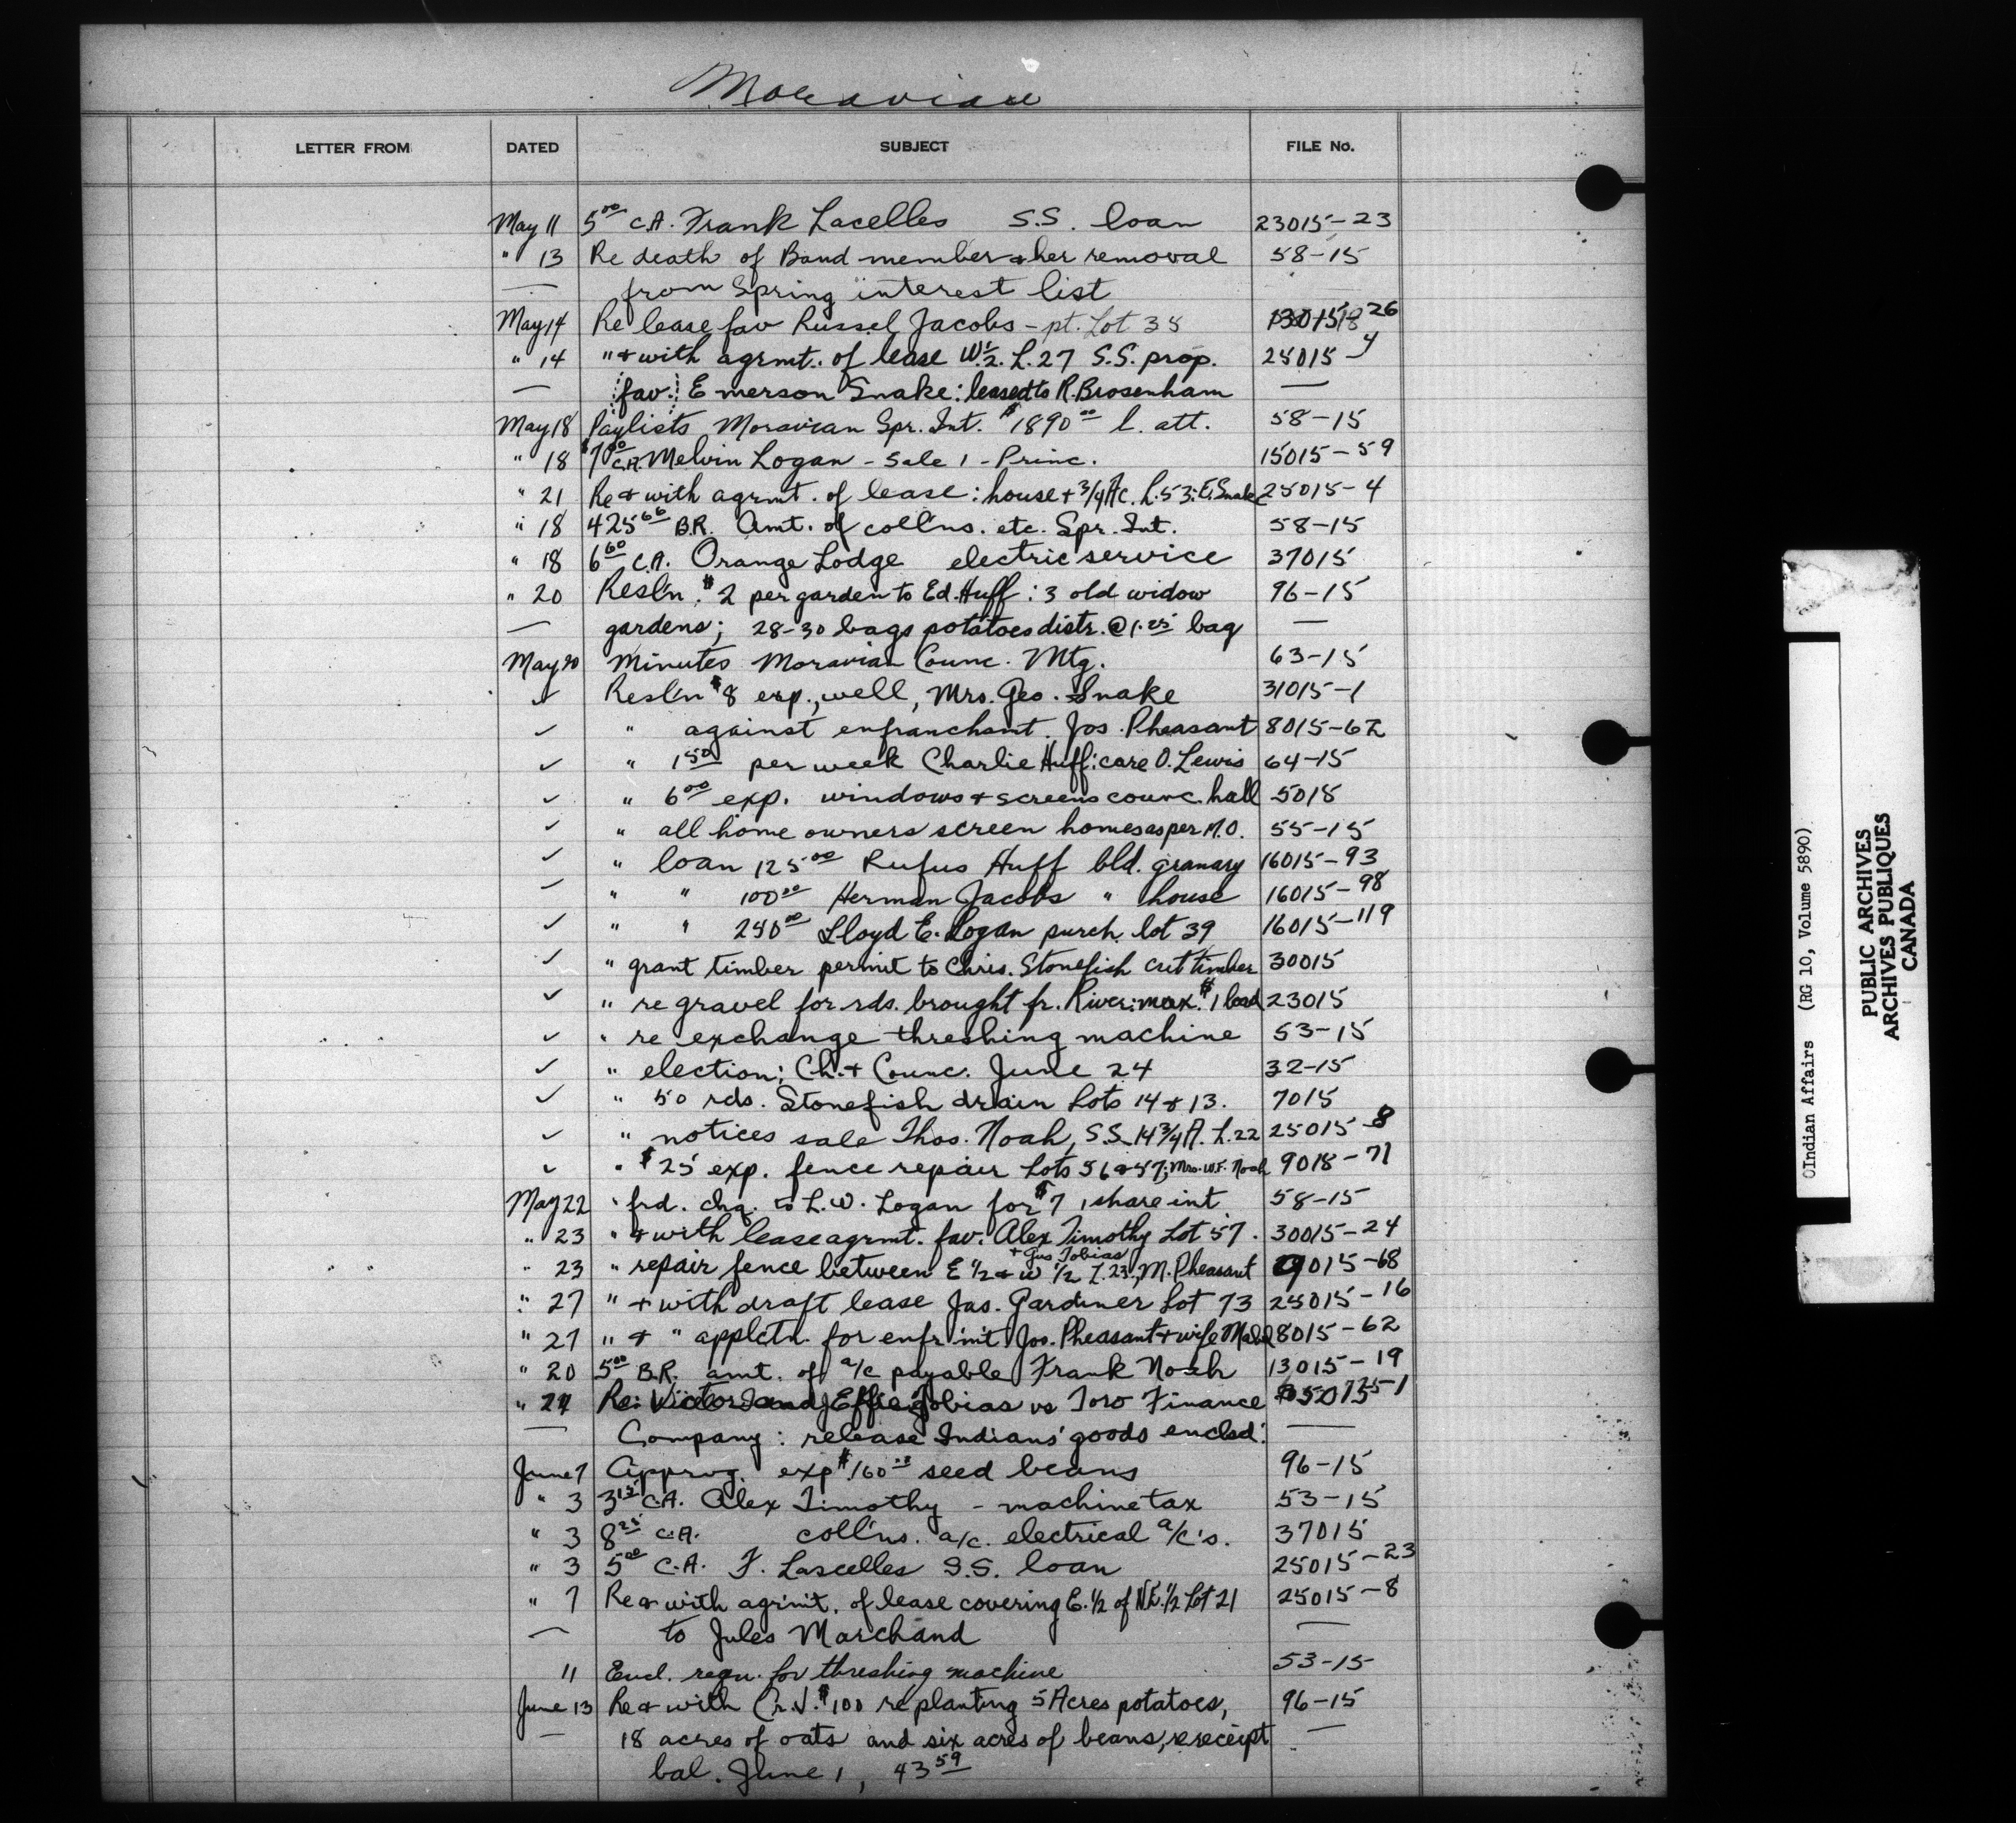 Moravian
LETTER FROM DATED SUBJECT FILE No.
May 11 5.00 C.A. Frank Lacelles S.S. loan 23015-23
" 13 Re death of Band member & her removal 58-15
— from Spring interest list
May 14 Re lease fav Russel Jacobs - pt. Lot 38
" 14 " & with agrmt. of lease W½. L. 27 S.S. prop. 25015-4
— fav. Emerson Snake: leased to R. Brosenham —
May 18 Paylists Moravian Spr. Int. $1890.00 l. att. 58-15
" 18 $7.00 C.A. Melvin Logan - Sale 1 - Princ. 15015-59
" 21 Re & with agrmt. of lease: house + 3/4 Ac. L. 53: E. Snake 25015-4
" 18 425.66 B.R. Amt. of coll'ns. etc. Spr. Int. 58-15
" 18 6.60 C.A. Orange Lodge electric service 37015
" 20 Resl'n. $2 per garden to Ed. Huff: 3 old widow 96-15
— gardens; 28-30 bags potatoes distr. @ 1.25 bag —
May 20 Minutes Moravian Counc. Mtg. 63-15
✓ Resl'n $8 exp., well, Mrs. Geo. Snake 31015-1
✓ " against enfranchsmt. Jos. Pheasant 8015-62
✓ " 1.50 per week Charlie Huff: care O. Lewis 64-15
✓ " 6.00 exp. windows & screens counc. hall 5015
✓ " all home owners screen homes as per M.O. 55-15
✓ " loan 125.00 Rufus Huff bld. granary 16015-93
✓ " " 100.00 Herman Jacobs " house 16015-98
✓ " " 250.00 Lloyd E. Logan purch. lot 39 16015-119
✓ " grant timber permit to Chris. Stonefish cut timber 30015
✓ " re gravel for rds. brought fr. River: max. $1 load 23015
✓ " re exchange threshing machine 53-15
✓ " election; Ch. & Counc. June 24 32-15
✓ " 50 rds. Stonefish drain Lots 14 & 13. 7015
✓ " notices sale Thos. Noah, S.S. 14 3/4 A. L. 22 25015-8
✓ " $25 exp. fence repair Lots 56 & 57; Mrs. W.F. Noah 9015-71
May 22 " frd. chq. to L.W. Logan for $7, share int. 58-15
" 23 " & with lease agrmt. fav. Alex Timothy Lot 57. 30015-24
+ Gus Tobias
" 23 " repair fence between E ½ & W ½ L. 23, M. Pheasant 9015-68
" 27 " & with draft lease Jas. Gardiner Lot 73 25015-16
" 27 " & " applctn. for enfr'm't Jos. Pheasant & wife Mabel 8015-62
" 20 5.00 B.R. amt. of a/c payable Frank Noah 13015-19
" 27 Re: Victor and Effie Tobias vs Toro Finance
— Company: release Indians' goods enclsd: —
June 7 Approg. exp $160.00 seed beans 96-15
" 3 3.15 C.A. Alex Timothy - machine tax 53-15
" 3 8.25 C.A. coll'ns. a/c. electrical a/c's. 37015
" 3 5.00 C.A. F. Lascelles S.S. loan 25015-23
" 7 Re & with agrm't. of lease covering E. ½ of N.E. ½ Lot 21 25015-8
— to Jules Marchand —
11 Encl. reqn. for threshing machine 53-15
June 13 Re & with Cr. V. $100 re planting 5 Acres potatoes, 96-15
— 18 acres of oats and six acres of beans, & receipt —
bal. June 1, 43.59
©Indian Affairs (RG 10, Volume 5890)
PUBLIC ARCHIVES
ARCHIVES PUBLIQUES
CANADA